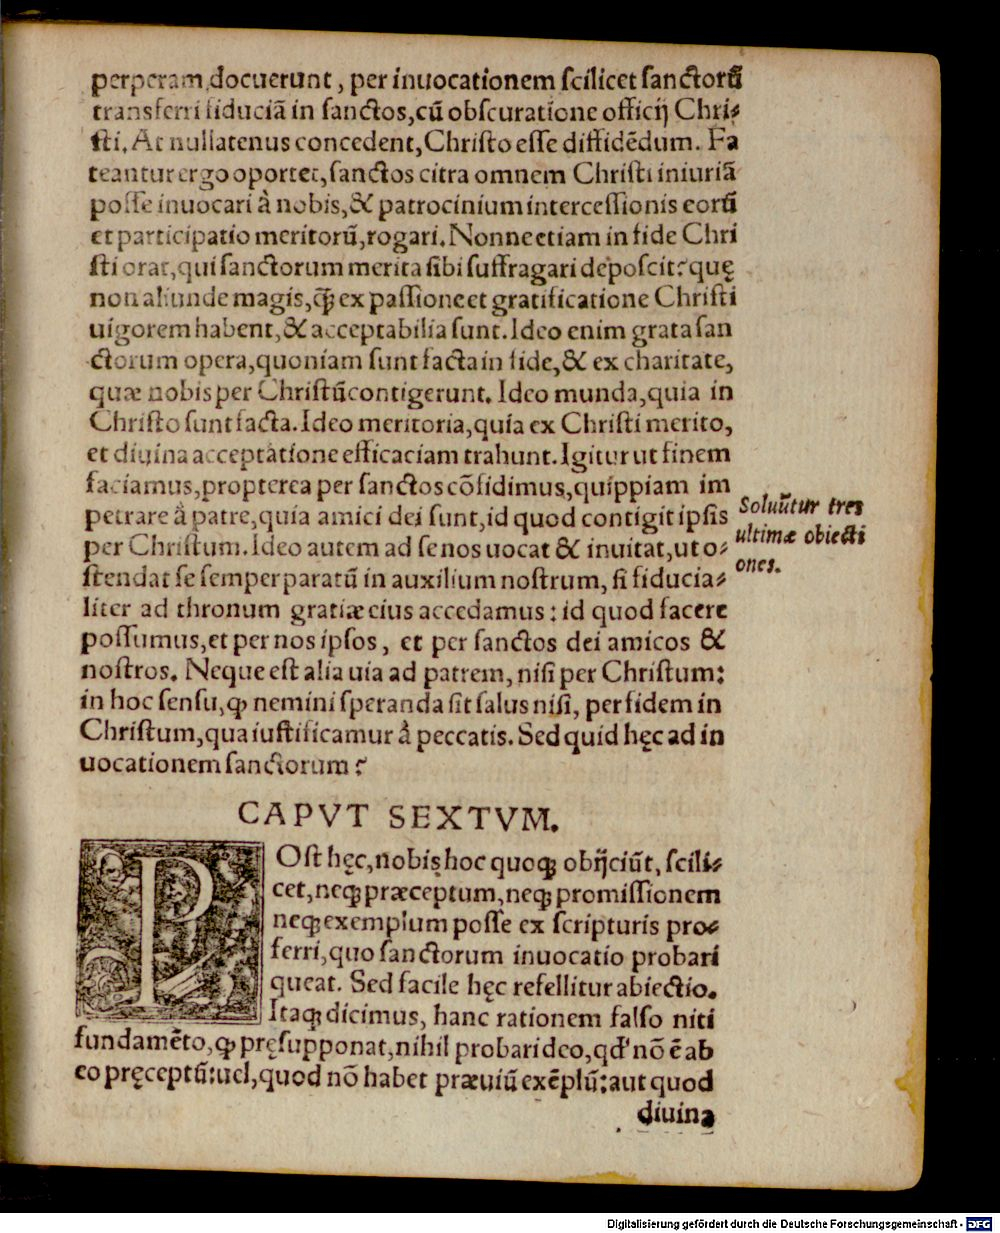 perperam docuerunt, per inuocationem scilicet sanctorũ
transferri fiduciã in sanctos, cũ obscuratione officij Chri⸗
sti. At nullatenus concedent, Christo esse diffidẽdum. Fa
teantur ergo oportet, sanctos citra omnem Christi iniuriã
posse inuocari à nobis, & patrocinium intercessionis eorũ
et participatio meritorũ, rogari. Nonne etiam in fide Chri
sti orat, qui sanctorum merita sibi suffragari deposcit? quę
non aliunde magis, q̃ꝫ ex passione et gratificatione Christi
uigorem habent, & acceptabilia sunt. Ideo enim grata san
ctorum opera, quoniam sunt facta in fide, & ex charitate,
quæ nobis per Christũ contigerunt. Ideo munda, quia in
Christo sunt facta. Ideo meritoria, quia ex Christi merito,
et diuina acceptatione efficaciam trahunt. Igitur ut finem
faciamus, propterea per sanctos cõfidimus, quippiam im
petrare à patre, quia amici dei sunt, id quod contigit ipsis
per Christum. Ideo autem ad se nos uocat & inuitat, ut o⸗
stendat se semper paratũ in auxilium nostrum, si fiducia⸗
liter ad thronum gratiæ eius accedamus: id quod facere
possumus, et per nos ipsos, et per sanctos dei amicos &
nostros. Neque est alia uia ad patrem, nisi per Christum:
in hoc sensu, ꝙ nemini speranda sit salus nisi, per fidem in
Christum, qua iustificamur à peccatis. Sed quid hęc ad in
uocationem sanctorum?
Soluũtur tres
ultimæ obiecti
ones.
CAPVT SEXTVM.
POst hęc, nobis hoc quoqꝫ obijciũt, scili⸗
cet, neqꝫ præceptum, neqꝫ promissionem
neqꝫ exemplum posse ex scripturis pro⸗
ferri, quo sanctorum inuocatio probari
queat. Sed facile hęc refellitur abiectio.
Itaqꝫ dicimus, hanc rationem falso niti
fundamẽto, ꝙ pręsupponat, nihil probari deo, qd' nõ ẽ ab
eo pręceptũ: uel, quod nõ habet præuiũ exẽplũ: aut quod
diuina
Digitalisierung gefördert durch die Deutsche Forschungsgemeinschaft - DFG